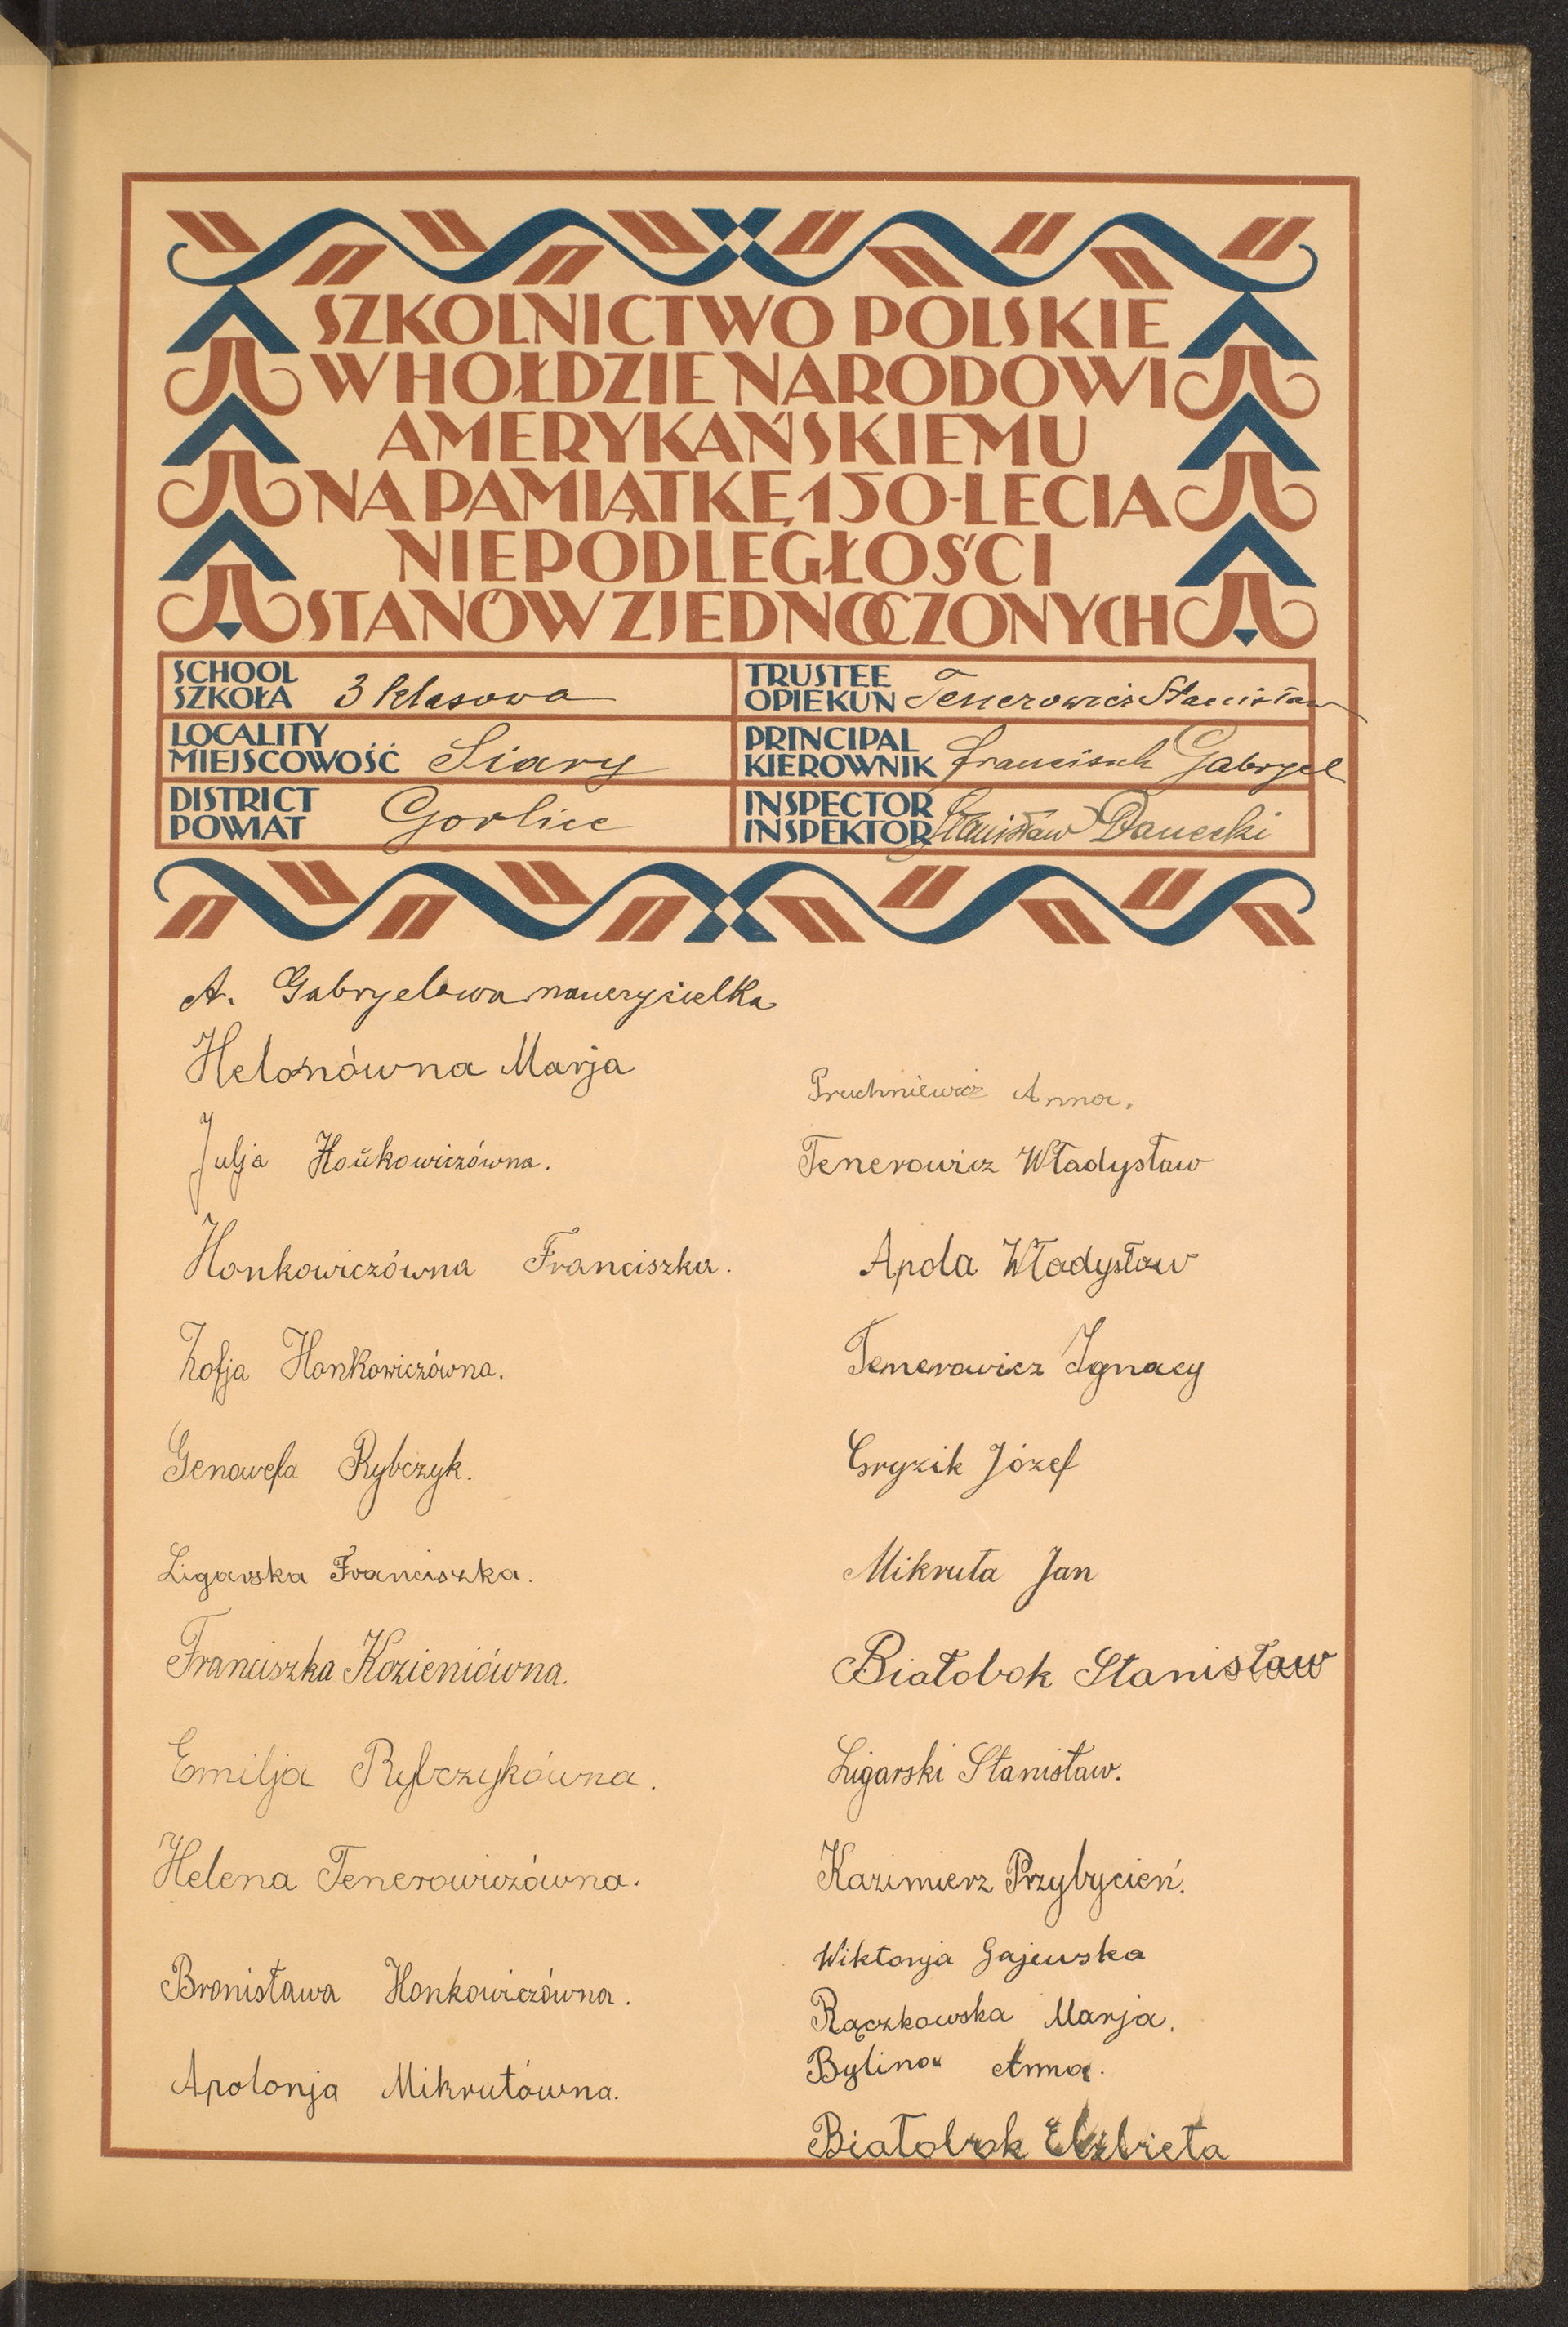 SZKOLNICTWO POLSKIE
W HOŁDZIE NARODOWI
AMERYKAŃSKIEMU
NA PAMIĄTKĘ 150-LECIA
NIEPODLEGŁOŚCI
STANÓW ZJEDNOCZONYCH
SCHOOL
SZKOŁA 3 klasowa
TRUSTEE
OPIEKUN Tenerowicz Stanisław
LOCALITY
MIEJSCOWOŚĆ Siary
PRINCIPAL
KIEROWNIK Franciszek Gabryel
DISTRICT
POWIAT Gorlice
INSPECTOR
INSPEKTOR Stanisław Danecki
A. Gabryelowa nauczycielka
Helonówna Marja
Julja Hońkowiczówna.
Honkowiczówna Franciszka.
Zofja Honkowiczówna.
Genowefa Rybczyk.
Ligarska Franciszka.
Franciszka Kozieniówna.
Emilja Rybczykówna.
Helena Tenerowiczówna.
Bronisława Honkowiczówna.
Apolonja Mikrutówna.
Pruchniewicz Anna.
Tenerowicz Władysław
Apola Władysław
Tenerowicz Ignacy
Gryzik Józef
Mikruta Jan
Białobok Stanisław
Ligarski Stanisław.
Kazimierz Przybycień.
Wiktorja Gajewska
Rączkowska Marja.
Bylina Anna.
Białobok Elżbieta